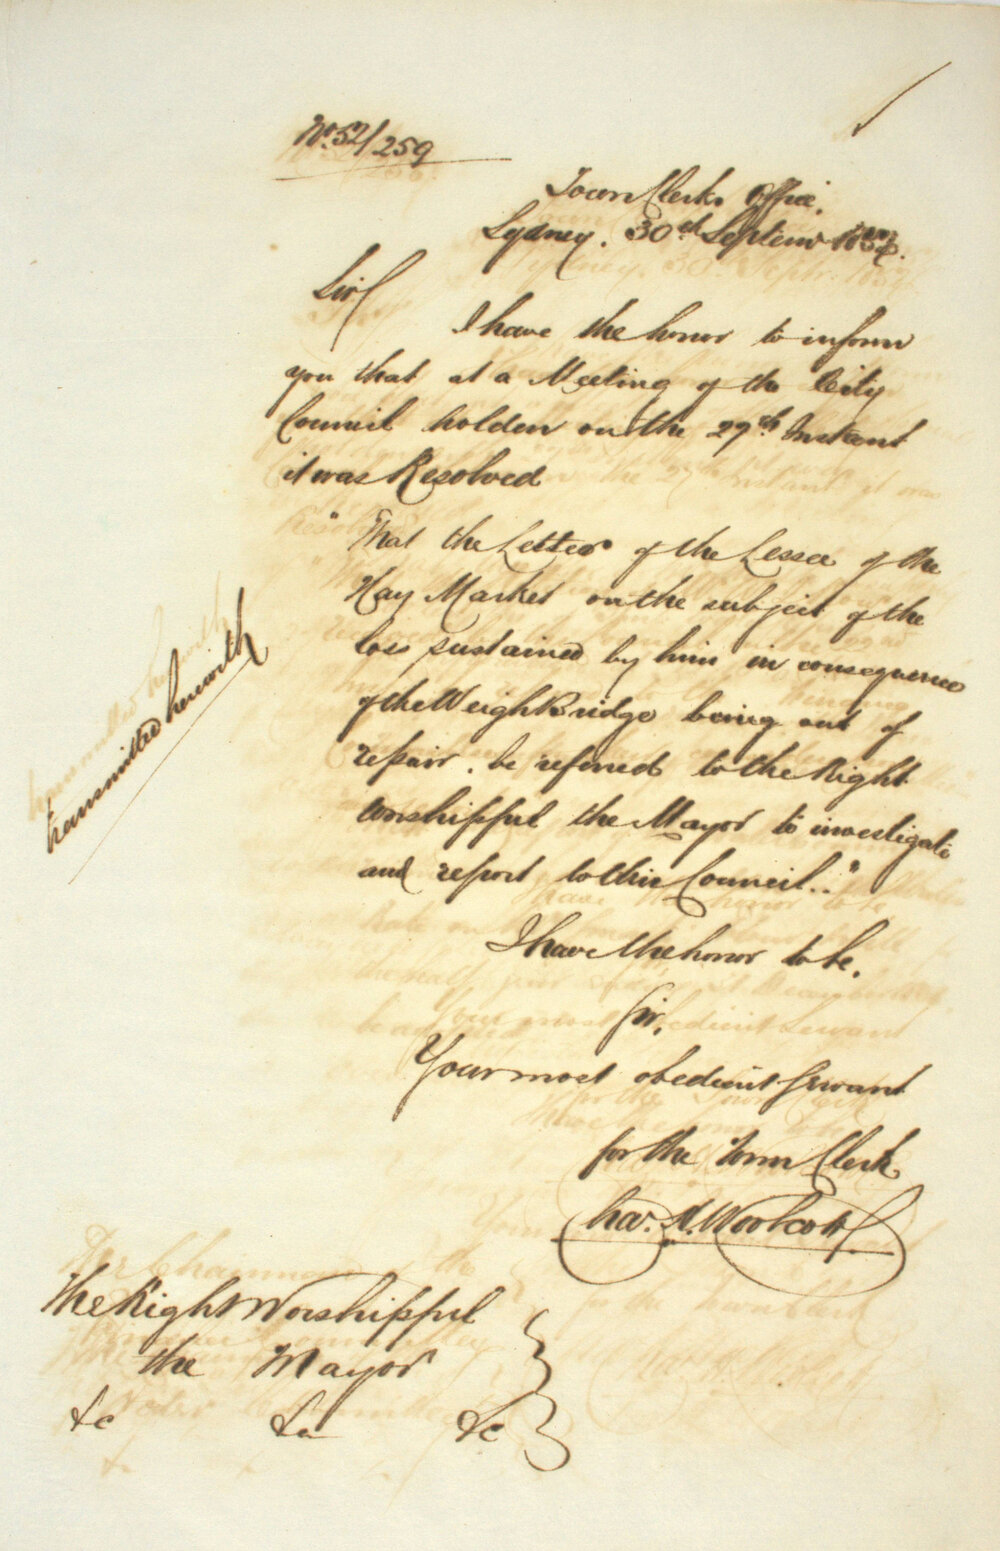 No. 52/259
Town Clerks Office,
Sydney. 30th Septemr 1852.
Sir/
I have the honor to inform
you that at a Meeting of the City
Council holden on the 29th. Instant
it was Resolved
"That the Letter of the Lessee of the
Hay Market on the subject of the
loss sustained by him in consequence
of the Weigh Bridge being out of
repair. be referred to the Right
Worshipful the Mayor to investigate
and report to this Council.."
transmitted herewith
I have the honor to be.
Sir,
Your most obedient Servant
for the Town Clerk
Chas. H. Woolcott
The Right Worshipful
the Mayor
&c &c &c